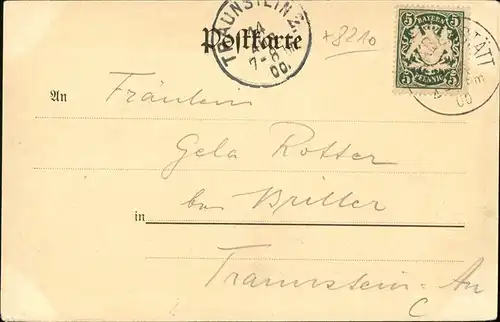 TRAUNSTEIN 2.
7-8
00.
Postkarte
+8210
BAYERN
5 5
5 PFENNIG 5
STÄTT
00
An Fräulein
Gela Rotter
bei Britter
in
Traunstein-Au
C